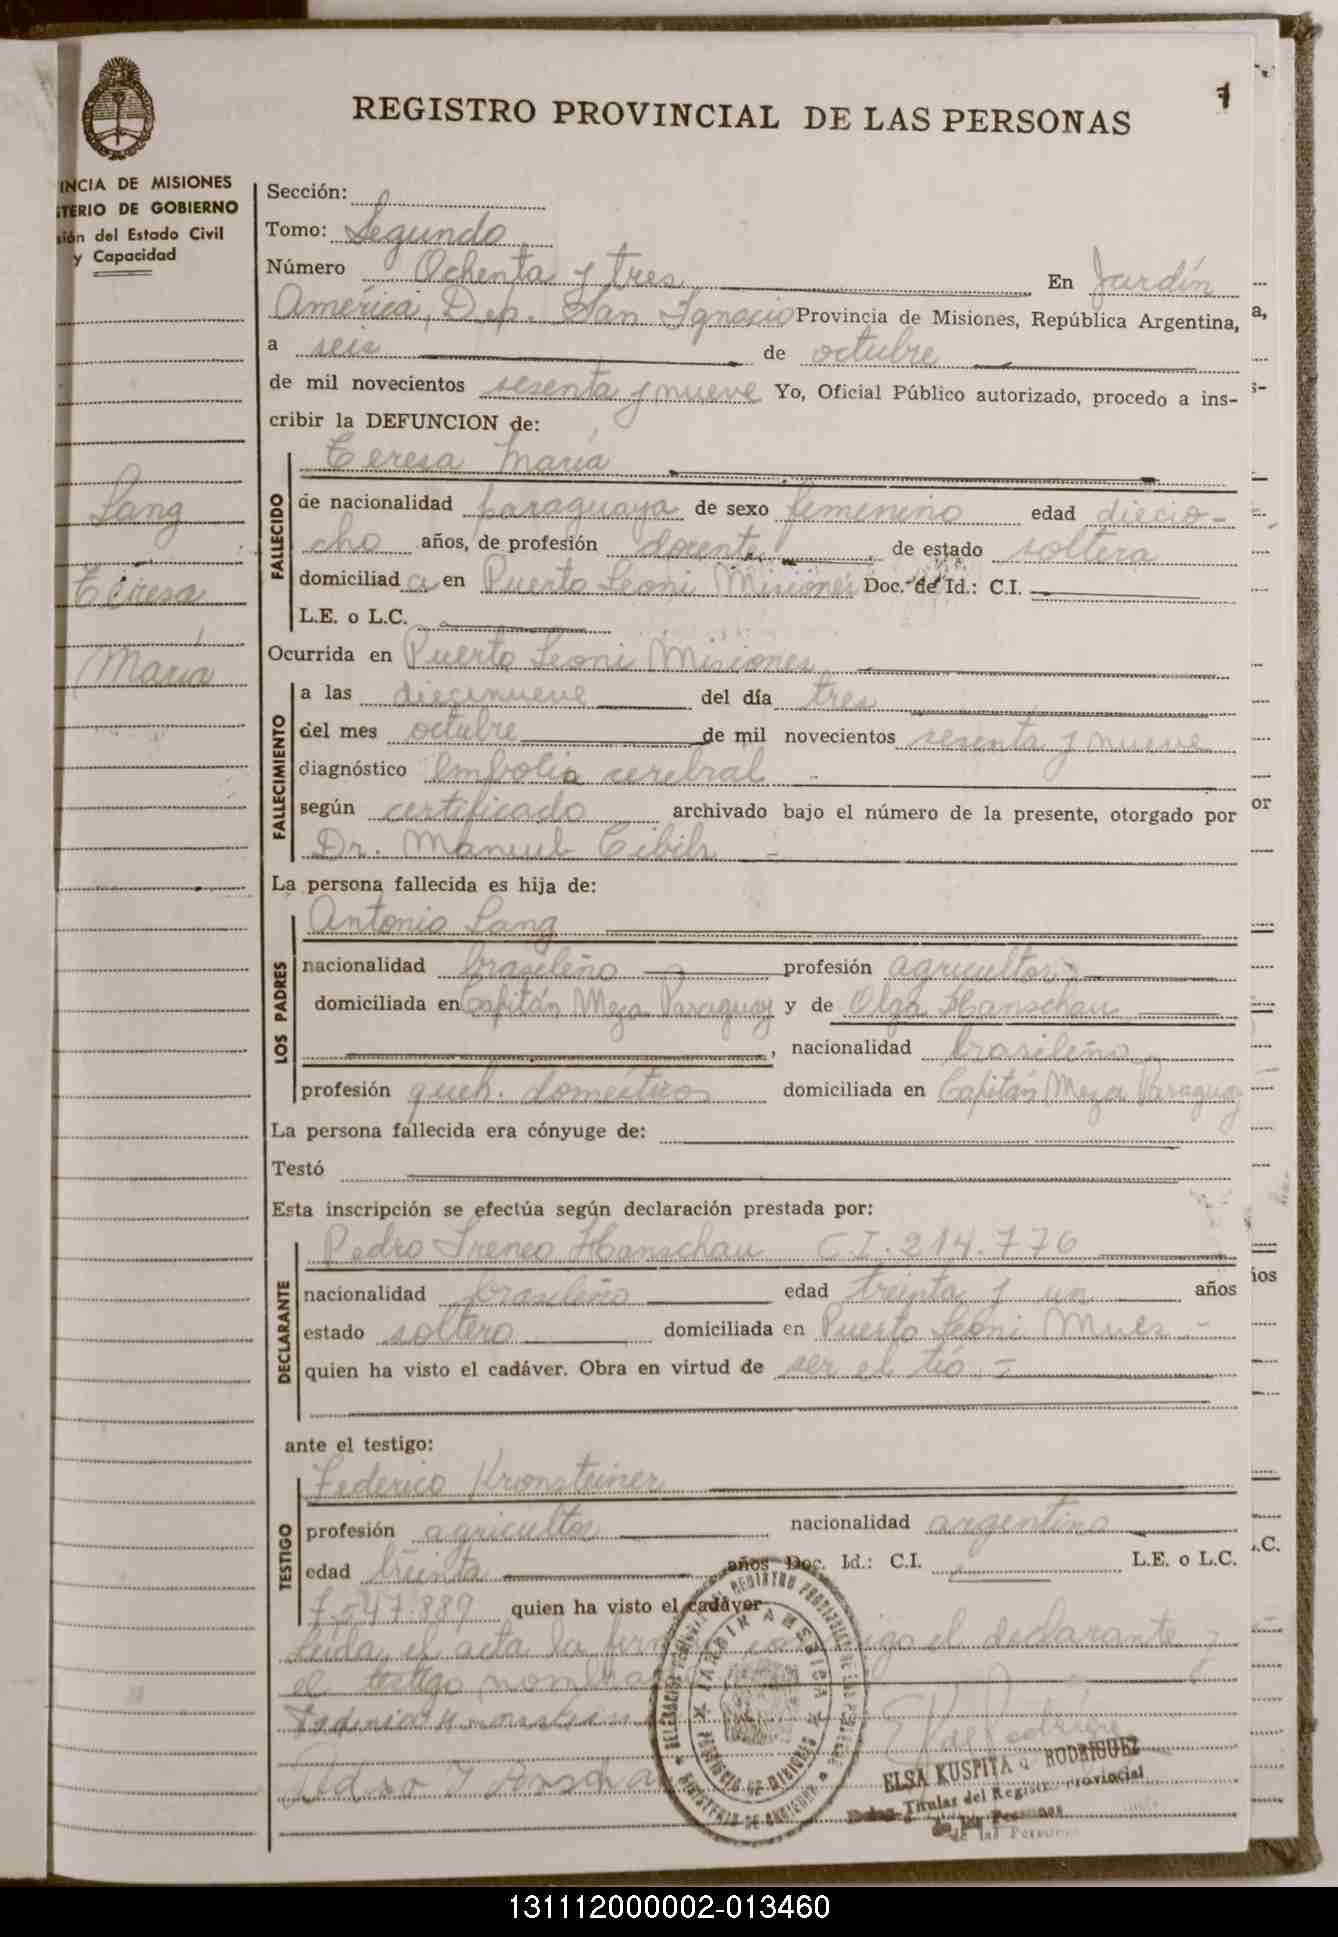 1
REGISTRO PROVINCIAL DE LAS PERSONAS
INCIA DE MISIONES
TERIO DE GOBIERNO
sión del Estado Civil
y Capacidad
Lang
Teresa
María
Sección:
Tomo: Segundo
Número Ochenta y tres En Jardín
América, Dep. San Ignacio Provincia de Misiones, República Argentina,
a seis de octubre
de mil novecientos sesenta y nueve Yo, Oficial Público autorizado, procedo a ins-
cribir la DEFUNCION de:
FALLECIDO
Teresa María
de nacionalidad paraguaya de sexo femenino edad diecio-
cho años, de profesión docente de estado soltera
domiciliad a en Puerto Leoni Misiones Doc. de Id.: C.I.
L.E. o L.C.
Ocurrida en Puerto Leoni Misiones
FALLECIMIENTO
a las diecinueve del día tres
del mes octubre de mil novecientos sesenta y nueve
diagnóstico embolia cerebral
según certificado archivado bajo el número de la presente, otorgado por
Dr. Manuel
La persona fallecida es hija de:
LOS PADRES
Antonio Lang
nacionalidad brasileño profesión agricultor
domiciliada en Capitán Meza Paraguay y de Olga Hanschau
, nacionalidad brasileña
profesión queh. domésticos domiciliada en Capitán Meza Paraguay
La persona fallecida era cónyuge de:
Testó
Esta inscripción se efectúa según declaración prestada por:
DECLARANTE
Pedro Ireneo Hanschau C.I. 214.776
nacionalidad brasileño edad treinta y un años
estado soltero domiciliada en Puerto Leoni Mnes -
quien ha visto el cadáver. Obra en virtud de ser el tío -
ante el testigo:
TESTIGO
Federico Kronsteiner
profesión agricultor nacionalidad argentino
edad treinta años Doc. Id.: C.I. L.E. o L.C.
7.547.889 quien ha visto el cadáver
Leida el acta la firman conmigo el declarante y
el testigo
JARDIN AMERICA
PROVINCIA DE MISIONES
MINISTERIO DE GOBIERNO
ELSA KUSPITA de RODRIGUEZ
Titular del Registro Provincial
de las Personas
de las Personas
a,
s-
or
ños
.C.
131112000002-013460